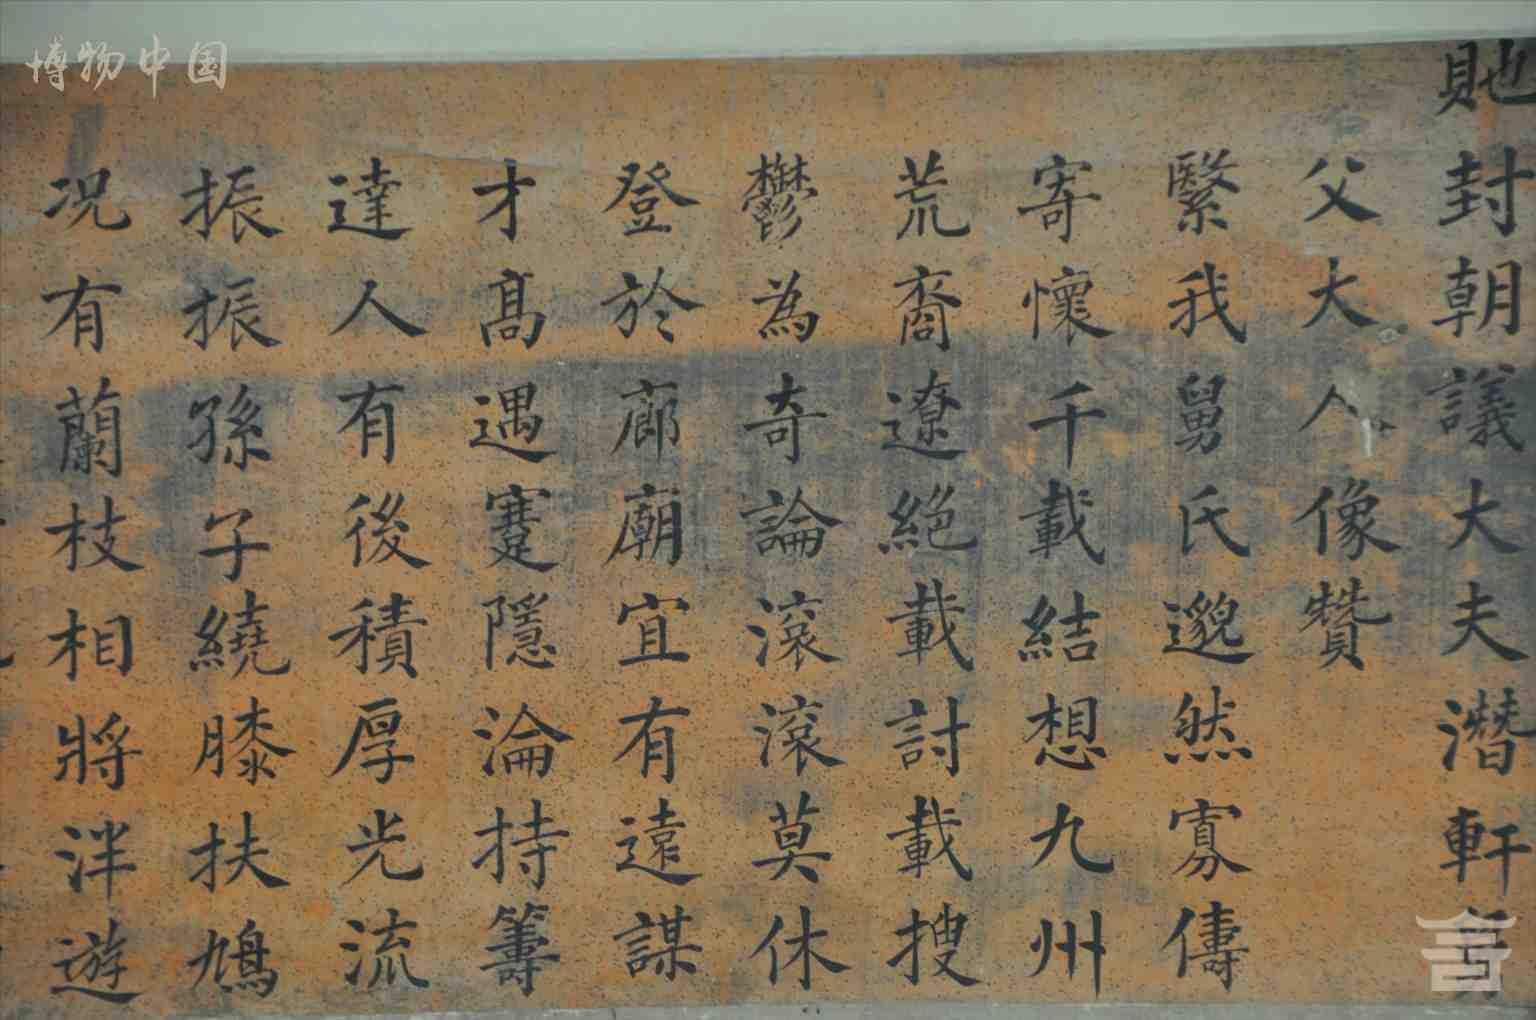 貤封朝議大夫潛軒
父大人像贊
繄我舅氏邈然寡儔
寄懷千載結想九州
荒裔遼絕載討載搜
鬱為奇論滾滾莫休
登於廊廟宜有遠謀
才高遇蹇隱淪持籌
達人有後積厚光流
振振孫子繞膝扶鳩
况有蘭枝相將泮遊
博物中国